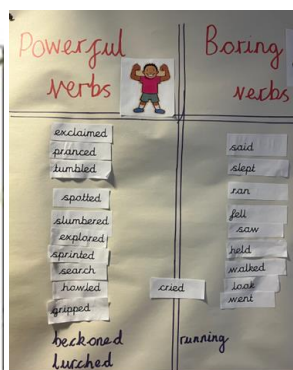 Powerful
verbs
Boring
verbs
exclaimed
pranced
tumbled
spotted
slumbered
explored
sprinted
search
howled
gripped
beckoned
lurched
cried
said
slept
ran
fell
saw
held
walked
look
went
running